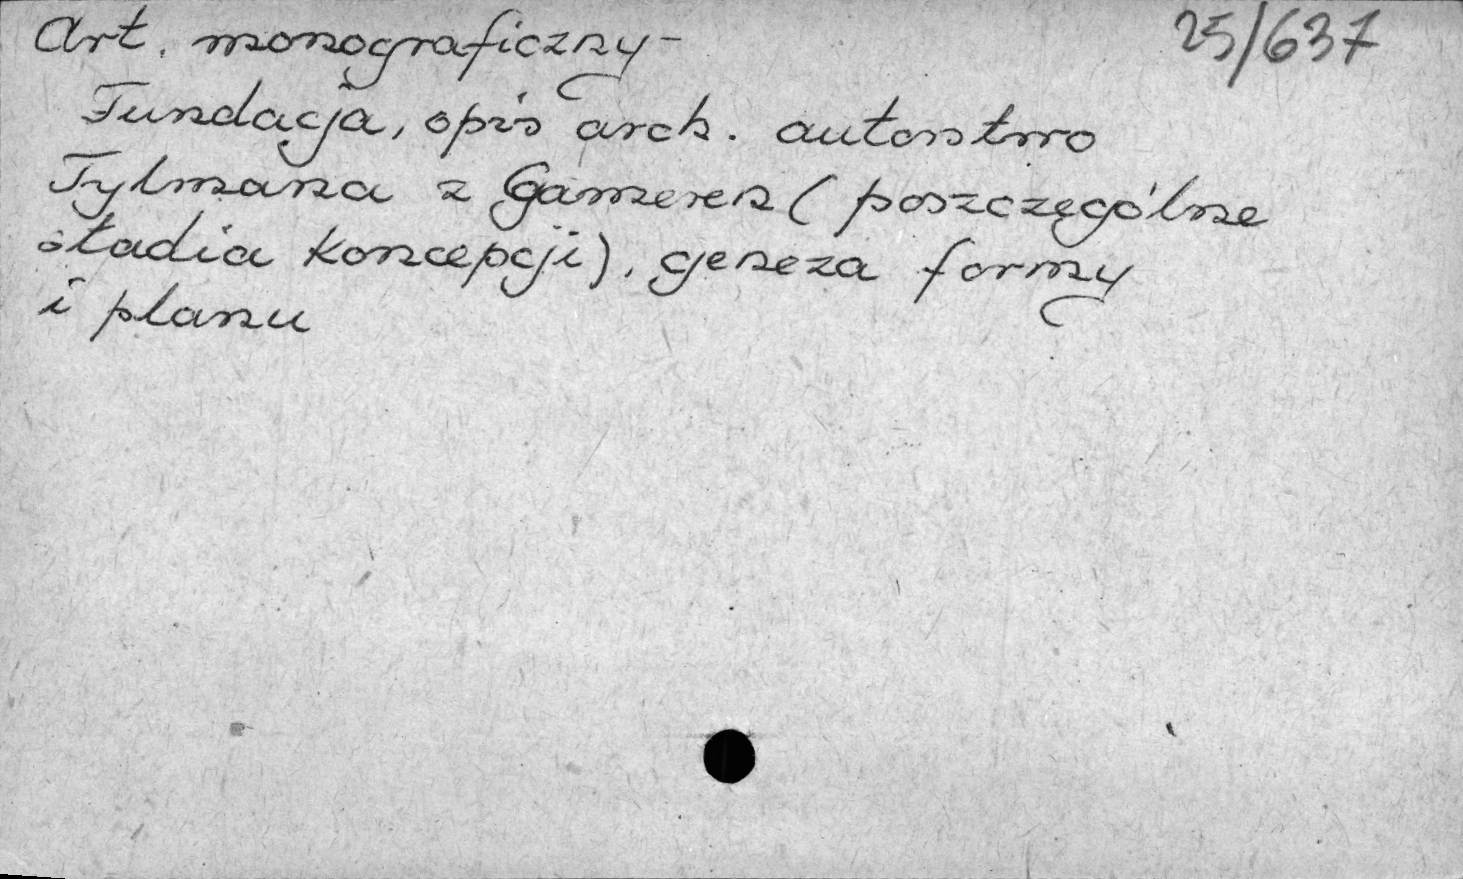 Art. monograficzny - 25/637
Fundacja, opis arch. autorstwo
Tylmana z Gameren (poszczególne
stadia koncepcji), geneza formy
i planu